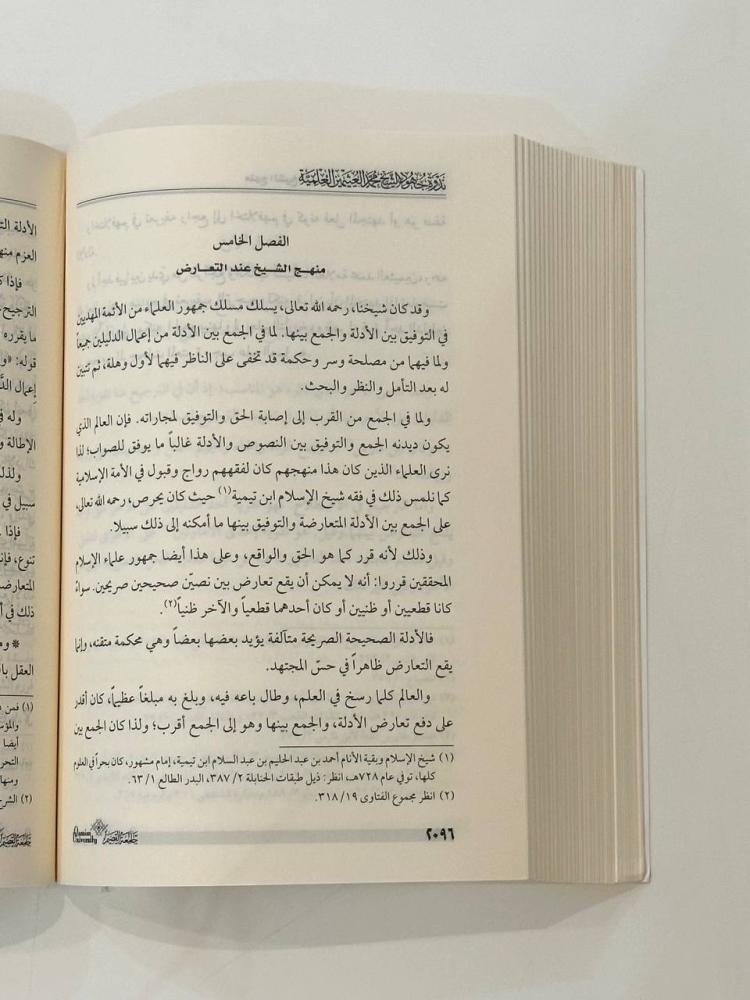 ندوة جهود الشيخ محمد العثيمين العلمية
الفصل الخامس
منهج الشيخ عند التعارض
وقد كان شيخنا، رحمه الله تعالى، يسلك مسلك جمهور العلماء من الأئمة المهديين
في التوفيق بين الأدلة والجمع بينها. لما في الجمع بين الأدلة من إعمال الدليلين جميعاً
ولما فيهما من مصلحة وسر وحكمة قد تخفى على الناظر فيهما لأول وهلة، ثم تتبين
له بعد التأمل والنظر والبحث.
ولما في الجمع من القرب إلى إصابة الحق والتوفيق لمجاراته. فإن العالم الذي
يكون ديدنه الجمع والتوفيق بين النصوص والأدلة غالباً ما يوفق للصواب؛ لذا
نرى العلماء الذين كان هذا منهجهم كان لفقههم رواج وقبول في الأمة الإسلامية
كما نلمس ذلك في فقه شيخ الإسلام ابن تيمية(١) حيث كان يحرص، رحمه الله تعالى،
على الجمع بين الأدلة المتعارضة والتوفيق بينها ما أمكنه إلى ذلك سبيلا.
وذلك لأنه قرر كما هو الحق والواقع، وعلى هذا أيضا جمهور علماء الإسلام
المحققين قرروا: أنه لا يمكن أن يقع تعارض بين نصيّن صحيحين صريحين. سواءً
كانا قطعيين أو ظنيين أو كان أحدهما قطعياً والآخر ظنياً(٢).
فالأدلة الصحيحة الصريحة متآلفة يؤيد بعضها بعضاً وهي محكمة متقنه، وإنما
يقع التعارض ظاهراً في حسّ المجتهد.
والعالم كلما رسخ في العلم، وطال باعه فيه، وبلغ به مبلغاً عظيماً، كان أقدر
على دفع تعارض الأدلة، والجمع بينها وهو إلى الجمع أقرب؛ ولذا كان الجمع بين
(١) شيخ الإسلام وبقية الأنام أحمد بن عبد الحليم بن عبد السلام ابن تيمية، إمام مشهور، كان بحراً في العلوم
كلها، توفي عام ٧٢٨هـ، انظر: ذيل طبقات الحنابلة ٢/ ٣٨٧، البدر الطالع ١/ ٦٣.
(٢) انظر مجموع الفتاوى ١٩/ ٣١٨.
٢٠٩٦
جامعة القصيم
Qassim University
الأدلة
العزم
فإذا
الترجيح
ما يقرره
قوله:
إعمال
وله
الإطالة
ولذلك
سبيل في
فإذا
تنوع، فإنه
المتعارضة
ذلك في
العقل
(١) فمن
أيضا
ومنها
(٢)